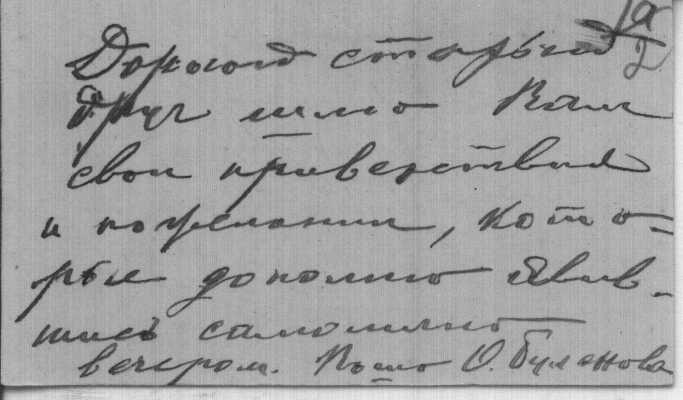 1а/2
Дорогой старый
друг шлю Вам
свои приветствия
и пожелания, кото=
рые дополню явив-
шись самолично
вечером. О. Буленова